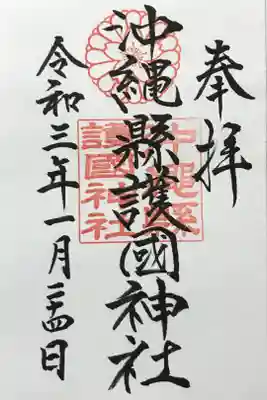 奉拝
沖縄縣護國神社
沖縄縣護國神社
令和三年一月二四日